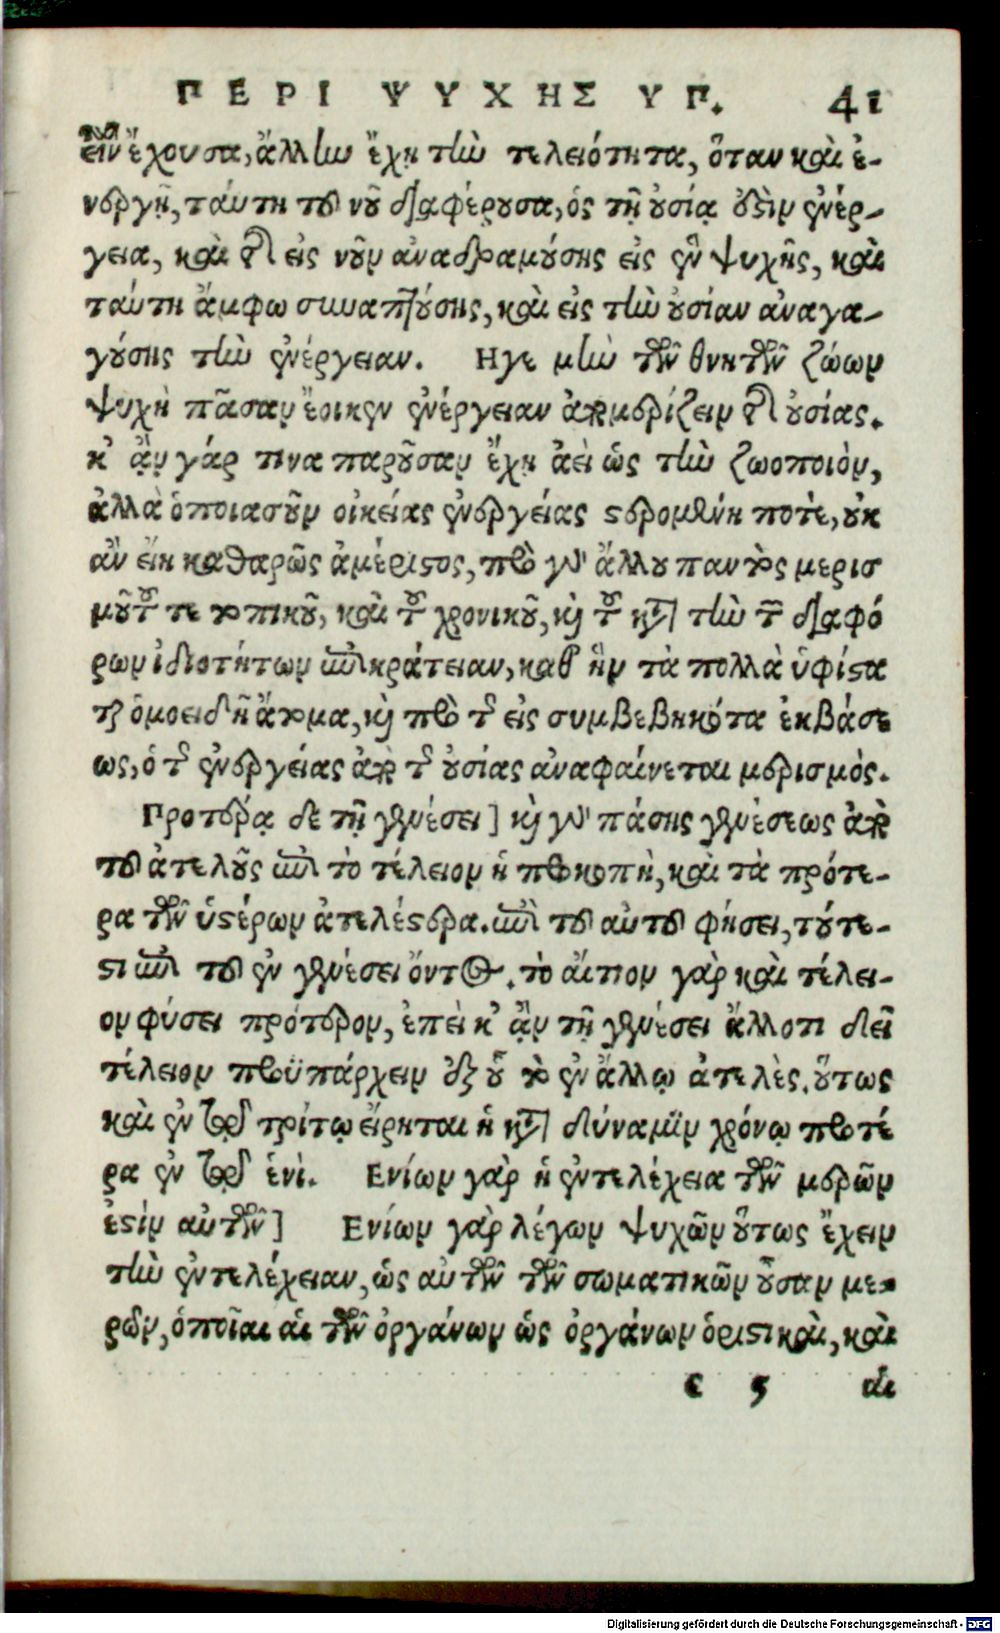 ΠΕΡΙ ΨΥΧΗΣ ΥΠ. 41
ἔχουσα, ἄλλην ἔχῃ τὴν τελειότητα, ὅταν καὶ ἐ-
νεργῇ, ταύτῃ τοῦ νοῦ διαφέρουσα, ὃς τῇ οὐσίᾳ ἐστὶν ἐνέρ-
γεια, καὶ τῆς εἰς νοῦν ἀναδραμούσης εἰς ἓν ψυχῆς, καὶ
ταύτῃ ἄμφω συναπτούσης, καὶ εἰς τὴν οὐσίαν ἀναγα-
γούσης τὴν ἐνέργειαν. Ηγε μὴν τῶν θνητῶν ζώων
ψυχὴ πᾶσαν ἔοικεν ἐνέργειαν ἀπομερίζειν τῆς οὐσίας.
κ' ἂν γάρ τινα παροῦσαν ἔχῃ ἀεὶ ὡς τὴν ζωοποιὸν,
ἀλλὰ ὁποιασοῦν οἰκείας ἐνεργείας στερομένη ποτὲ, οὐκ
ἂν εἴη καθαρῶς ἀμέριστος, πρὸ γοῦν ἄλλου παντὸς μερισ
μοῦ τοῦ τε τοπικοῦ, καὶ τοῦ χρονικοῦ, καὶ τοῦ κατὰ τὴν τῶν διαφό
ρων ἰδιοτήτων ἐπικράτειαν, καθ' ἣν τὰ πολλὰ ὑφίστα
ται ὁμοειδῆ ἄτομα, καὶ πρὸ τῆς εἰς συμβεβηκότα ἐκβάσε
ως, ὁ τῆς ἐνεργείας ἀπὸ τῆς οὐσίας ἀναφαίνεται μερισμὸς.
Προτέρᾳ δὲ τῇ γενέσει] καὶ γοῦν πάσης γενέσεως ἀπὸ
τοῦ ἀτελοῦς ἐπὶ τὸ τέλειον ἡ προκοπὴ, καὶ τὰ πρότε-
ρα τῶν ὑστέρων ἀτελέστερα. ἐπὶ τοῦ αὐτοῦ φήσει, τούτε-
στι ἐπὶ τοῦ ἐν γενέσει ὄντος. τὸ αἴτιον γὰρ καὶ τέλει-
ον φύσει πρότερον, ἐπεὶ κ' ἂν τῇ γενέσει ἄλλοτι δεῖ
τέλειον προϋπάρχειν ἐξ οὗ τὸ ἐν ἄλλῳ ἀτελὲς. οὕτως
καὶ ἐν τῷ τρίτῳ εἴρηται ἡ κατὰ δύναμιν χρόνῳ προτέ
ρα ἐν τῷ ἑνὶ. Ενίων γὰρ ἡ ἐντελέχεια τῶν μερῶν
ἐστὶν αὐτῶν] Ενίων γὰρ λέγων ψυχῶν οὕτως ἔχειν
τὴν ἐντελέχειαν, ὡς αὐτῶν τῶν σωματικῶν οὖσαν με-
ρῶν, ὁποῖαι αἱ τῶν ὀργάνων ὡς ὀργάνων ὁριστικαὶ, καὶ
c 5 αἱ
Digitalisierung gefördert durch die Deutsche Forschungsgemeinschaft - DFG